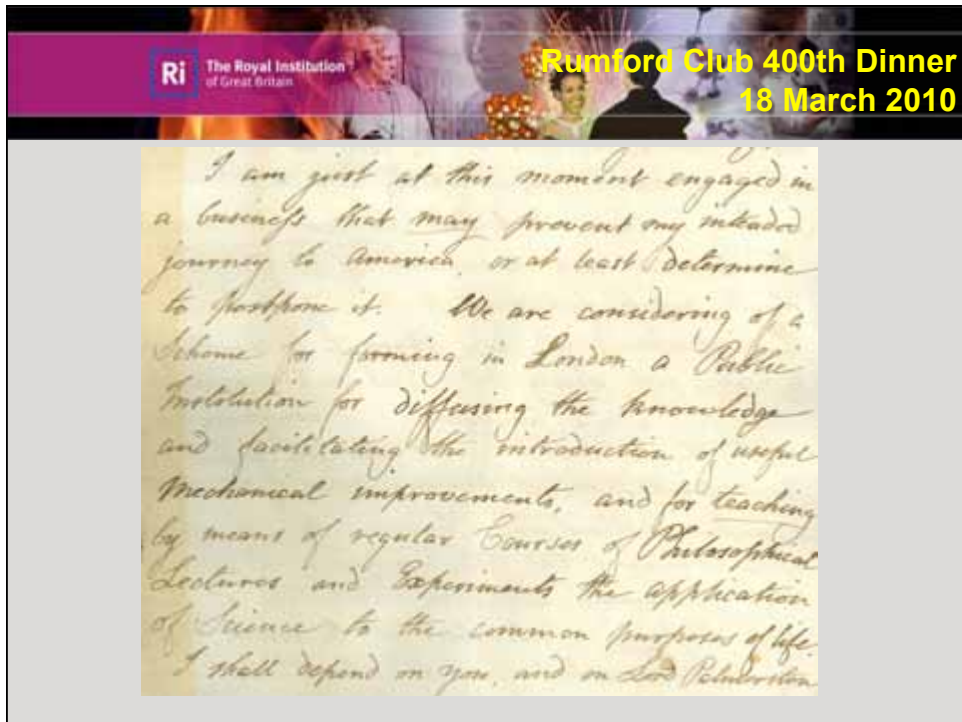 Ri
The Royal Institution
of Great Britain
Rumford Club 400th Dinner
18 March 2010
I am just at this moment engaged in
a business that may prevent my intended
journey to America, or at least determine
to postpone it. We are considering of a
Scheme for forming in London a Public
Institution for diffusing the knowledge
and facilitating the introduction of useful
Mechanical improvements, and for teaching
by means of regular Courses of Philosophical
Lectures and Experiments the application
of Science to the common purposes of life.
I shall depend on you, and on Lord Palmerston